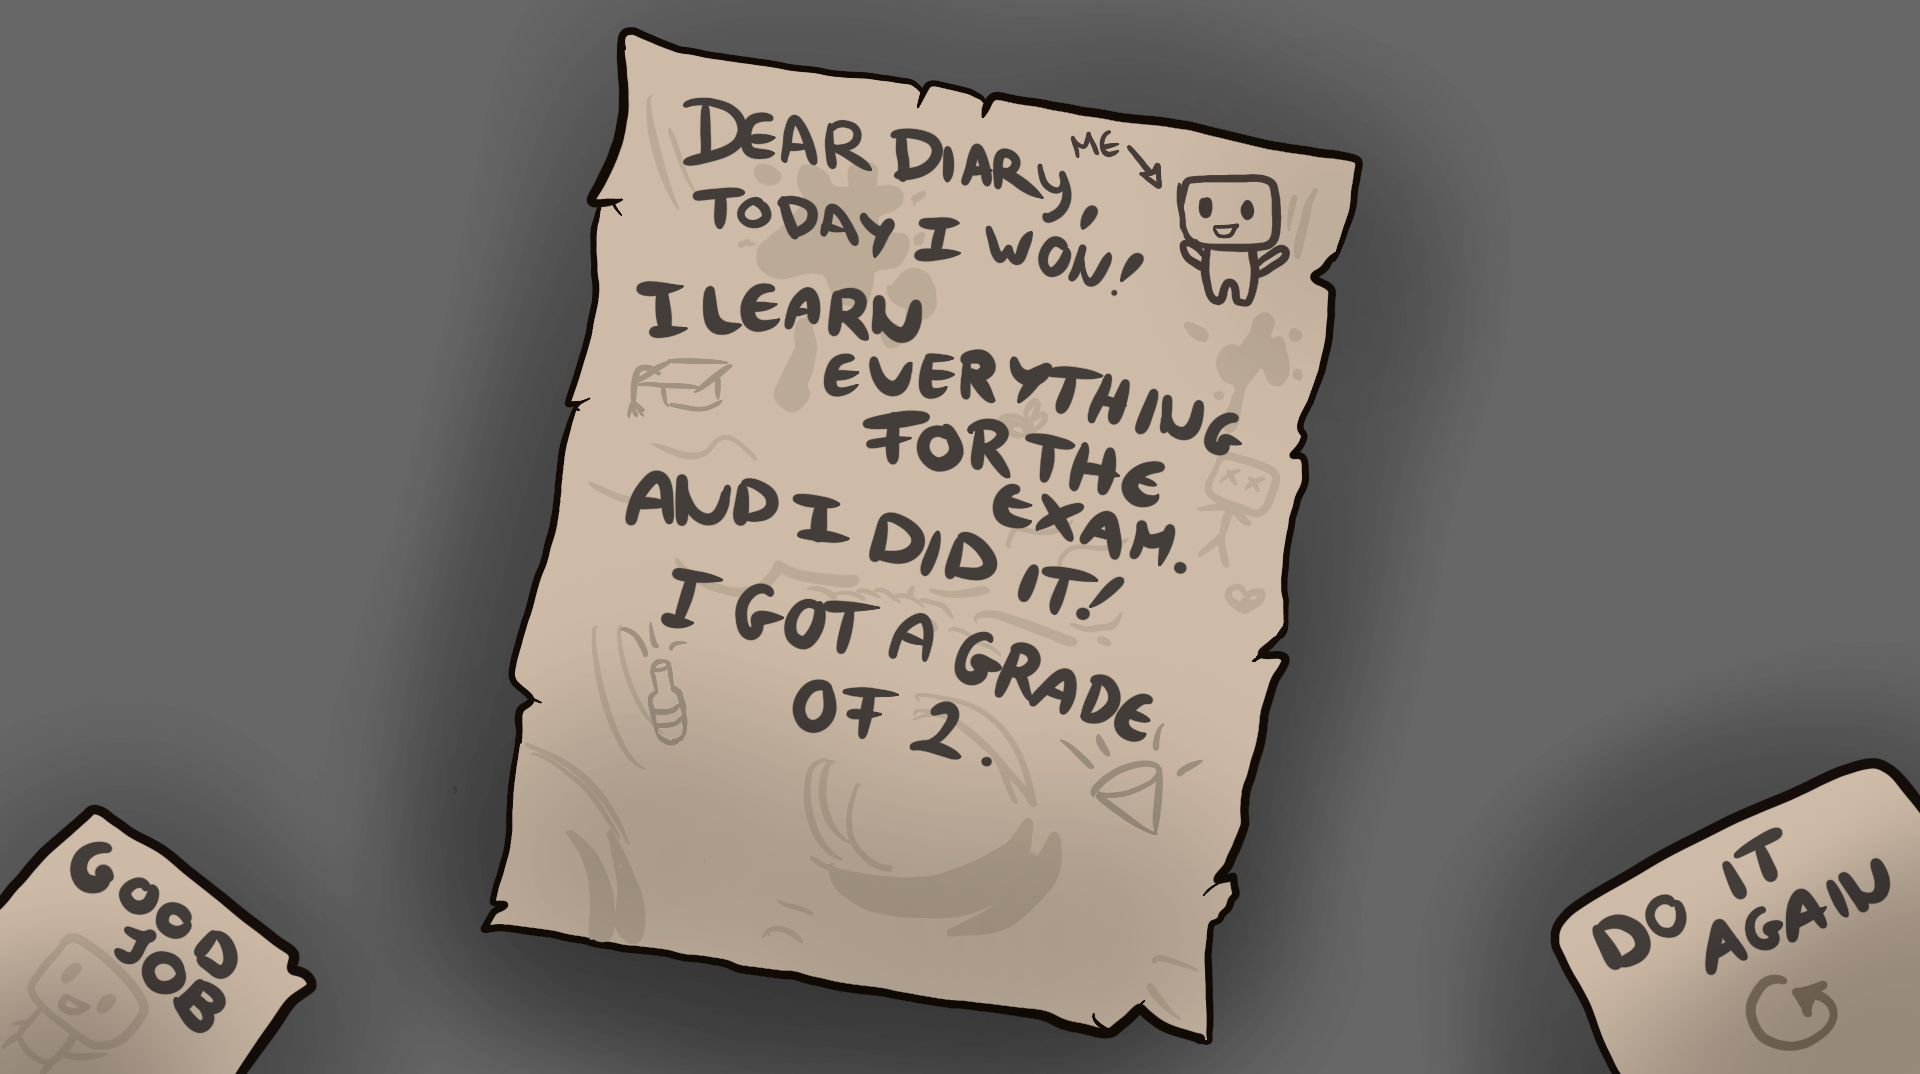 DEAR DIARY,
ME
TODAY I WON!
I LEARN
EVERYTHING
FOR THE
EXAM.
AND I DID IT!
I GOT A GRADE
OF 2.
GOOD
JOB
DO IT
AGAIN